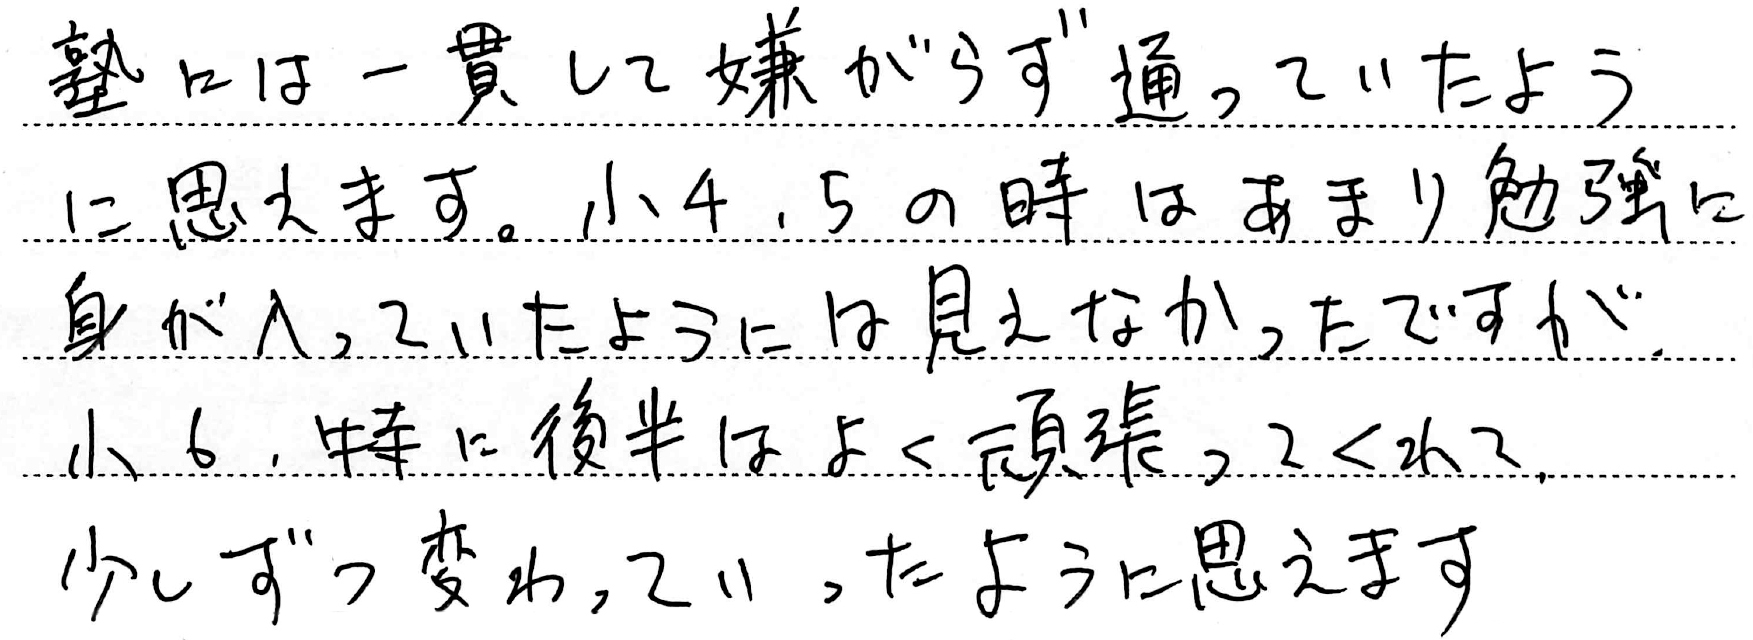 塾には一貫して嫌がらず通っていたよう
に思えます。小4、5の時はあまり勉強に
身が入っていたようには見えなかったですが、
小6、特に後半はよく頑張ってくれて、
少しずつ変わっていったように思えます